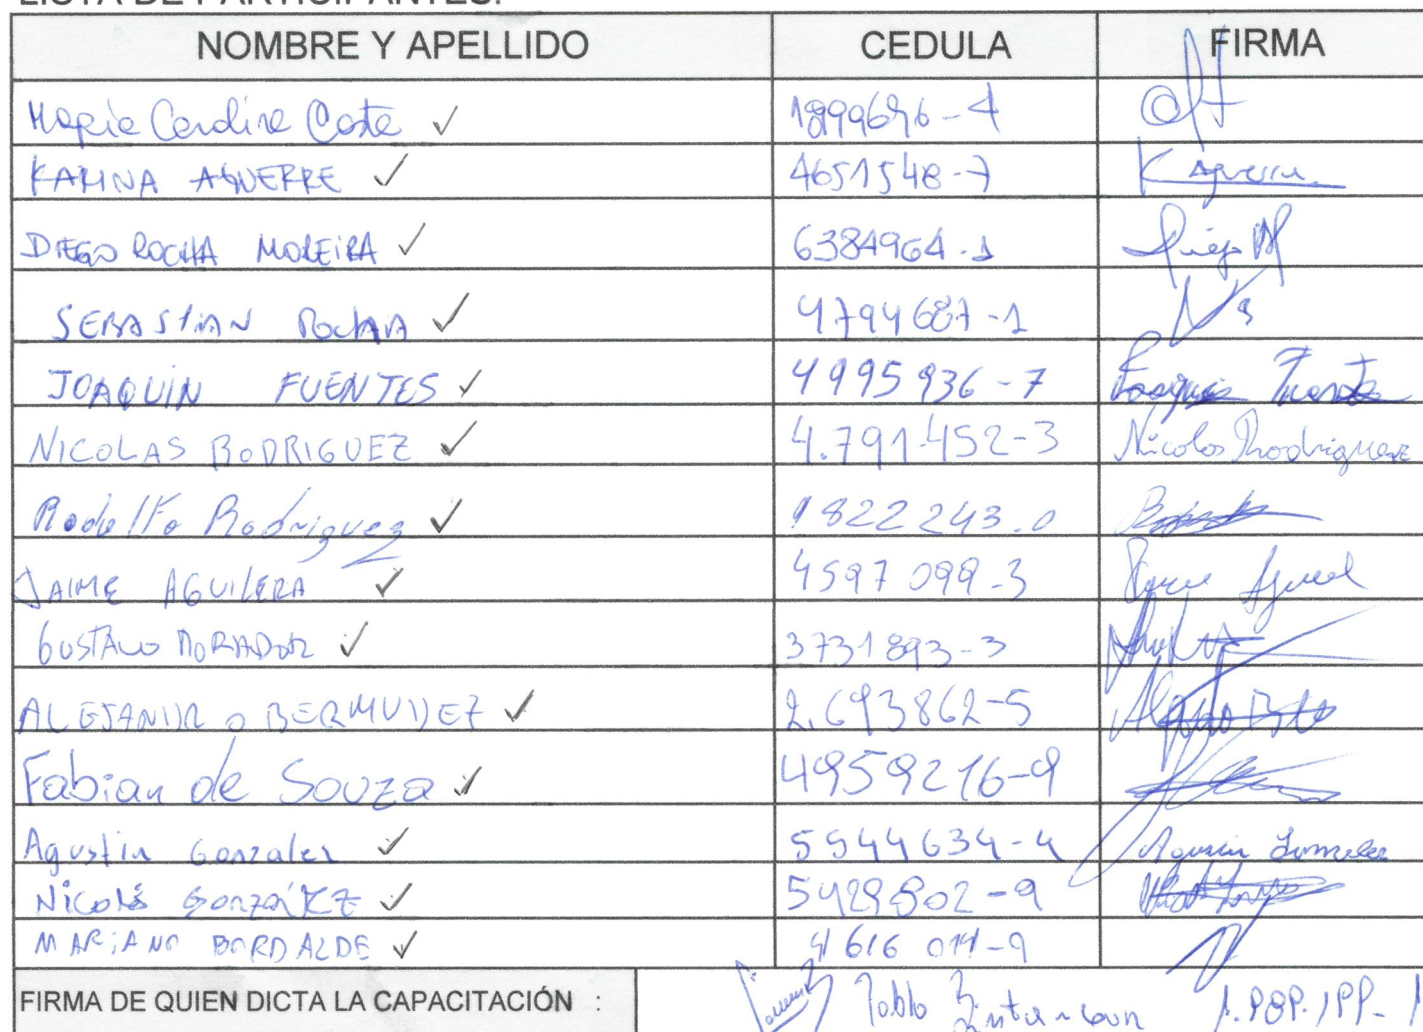 LISTA DE PARTICIPANTES:
NOMBRE Y APELLIDO CEDULA FIRMA
Maria Carolina Costa ✓
KARINA AGUERRE ✓ 4651548-7 K Aguerre
DIEGO ROCHA MOREIRA ✓ 6384964-1 Diego M
SEBASTIAN ROCHA ✓ 4794687-1
JOAQUIN FUENTES ✓ 4995936-7 Joaquin Fuentes
NICOLAS RODRIGUEZ ✓ 4.791.452-3 Nicolas Rodriguez
Rodolfo Rodriguez ✓ 1822243.0
JAIME AGUILERA ✓ 4597099-3
GUSTAVO MORADOR ✓ 3731893-3
ALEJANDRO BERMUDEZ ✓ 2.693862-5
Fabian de Souza ✓ 4959216-9
Agustin Gonzalez ✓ 5544634-4 Agustin Gonzalez
Nicolás González ✓ 5429802-9
MARIANO BORDALDE ✓ 4616014-9
FIRMA DE QUIEN DICTA LA CAPACITACIÓN : Pablo